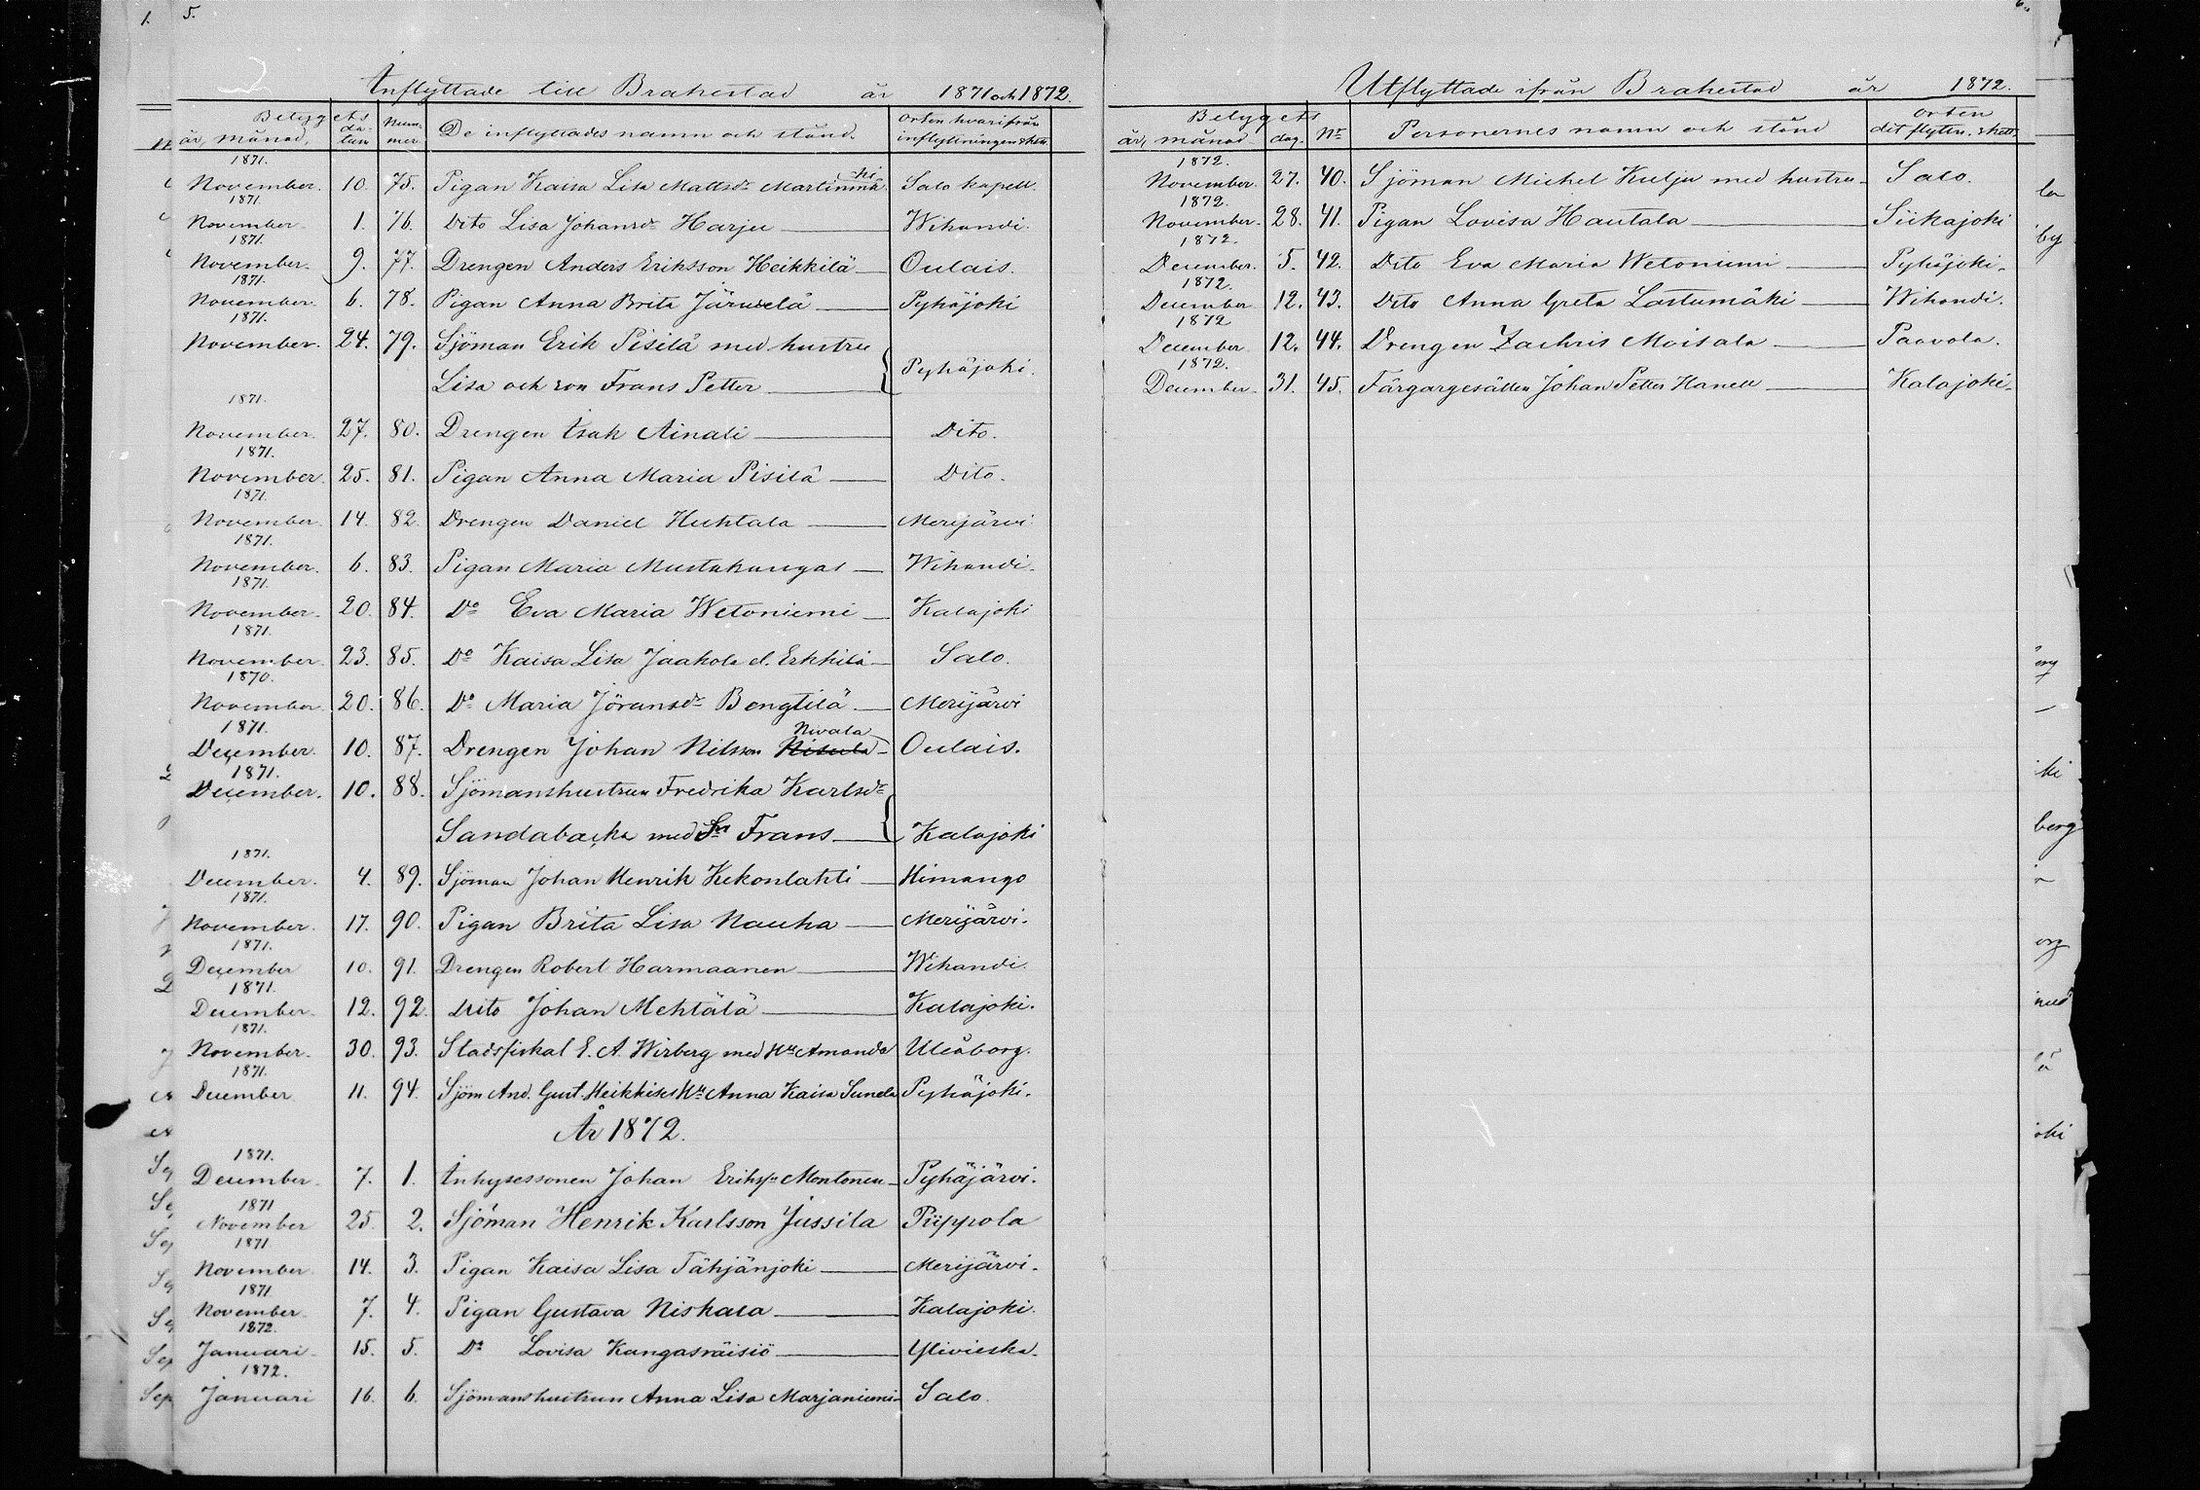 5.
Inflyttade till Brahestad år 1871 och 1872.
Betygets år, månad, datum Nummer De inflyttades namn och stånd. Orten hvarifrån inflyttningen skett.
1871.
November. 10. 75. Pigan Kaisa Lisa Mattsdr Martin Salo kapell.
1871.
November. 1. 76. Dito Lisa Johansdr Harju Wihandi.
1871.
November. 9. 77. Drengen Anders Eriksson Heikkilä Oulais.
1871.
November. 6. 78. Pigan Anna Brita Järvelä Pyhäjoki
1871.
November. 24. 79. Sjöman Erik Pisilä med hustru
Lisa och son Frans Petter Pyhäjoki.
1871.
November. 27. 80. Drengen Isak Ainali Dito.
1871.
November. 25. 81. Pigan Anna Maria Pisilä Dito.
1871.
November. 14. 82. Drengen Daniel Huhtala Merijärvi
1871.
November. 6. 83. Pigan Maria Mustakangas Wihandi.
1871.
November. 20. 84. Do Eva Maria Wetoniemi Kalajoki
1871.
November. 23. 85. Do Kaisa Lisa Jaakola el. Erkkilä Salo.
1870.
November. 20. 86. Do Maria Jöransdr Bengtilä Merijärvi
1871. Nivala
December. 10. 87. Drengen Johan Nilsson Nisula Oulais.
1871.
December. 10. 88. Sjömanshustrun Fredrika Karlsdr
Sandabacka med Sn Frans Kalajoki
1871.
December. 4. 89. Sjöman Johan Henrik Kekonlahti Himango
1871.
November. 17. 90. Pigan Brita Lisa Nauha Merijärvi.
1871.
December 10. 91. Drengen Robert Harmaanen Wihandi.
1871.
December. 12. 92. Dito Johan Mehtälä Kalajoki.
1871.
November. 30. 93. Stadsfiskal E. A. Wirberg med Hu Amanda Uleåborg.
1871.
December 11. 94. Sjöm And. Gust. Heikkises Hu Anna Kaisa Pyhäjoki.
År 1872.
1871.
December. 7. 1. Inhysessonen Johan Eriksson Montonen Pyhäjärvi.
1871
November 25. 2. Sjöman Henrik Karlsson Jussila Piippola
1871
November 14. 3. Pigan Kaisa Lisa Tähjänjoki Merijärvi.
1871
November. 7. 4. Pigan Gustava Niskala Kalajoki.
1872.
Januari 15. 5. Do Lovisa Kangasräisiö Ylivieska.
1872.
Januari 16. 6. Sjömanshustrun Anna Lisa Marjaniemi Salo.
Utflyttade ifrån Brahestad år 1872.
Betygets år, månad dag. No Personernes namn och stånd Orten dit flyttn. skett
1872.
November. 27. 40. Sjöman Michel Kulju med hustru Salo.
1872.
November. 28. 41. Pigan Lovisa Hautala Siikajoki
1872.
December. 5. 42. Dito Eva Maria Wetoniemi Pyhäjoki.
1872.
December 12. 43. Dito Anna Greta Lastumäki Wihandi.
1872
December 12. 44. Drengen Zachris Moisala Paavola.
1872.
December. 31. 45. Färgargesällen Johan Petter Hanell Kalajoki.